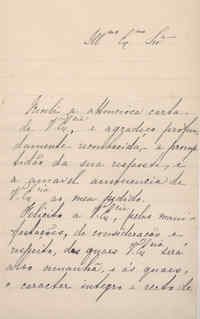 Illmo Exmo Snr
Recebi a attenciosa carta
de V. Exia, e agradeço profun-
damente reconhecido, a promp-
tidão da sua resposta, e
a amavel annuencia de
V. Exia ao meu pedido.
Felicito a V. Exia, pelas mani-
festações, de consideração e
respeito, das quaes V. Exia será
alvo amanhã, e ás quaes,
o caracter integro e recto de